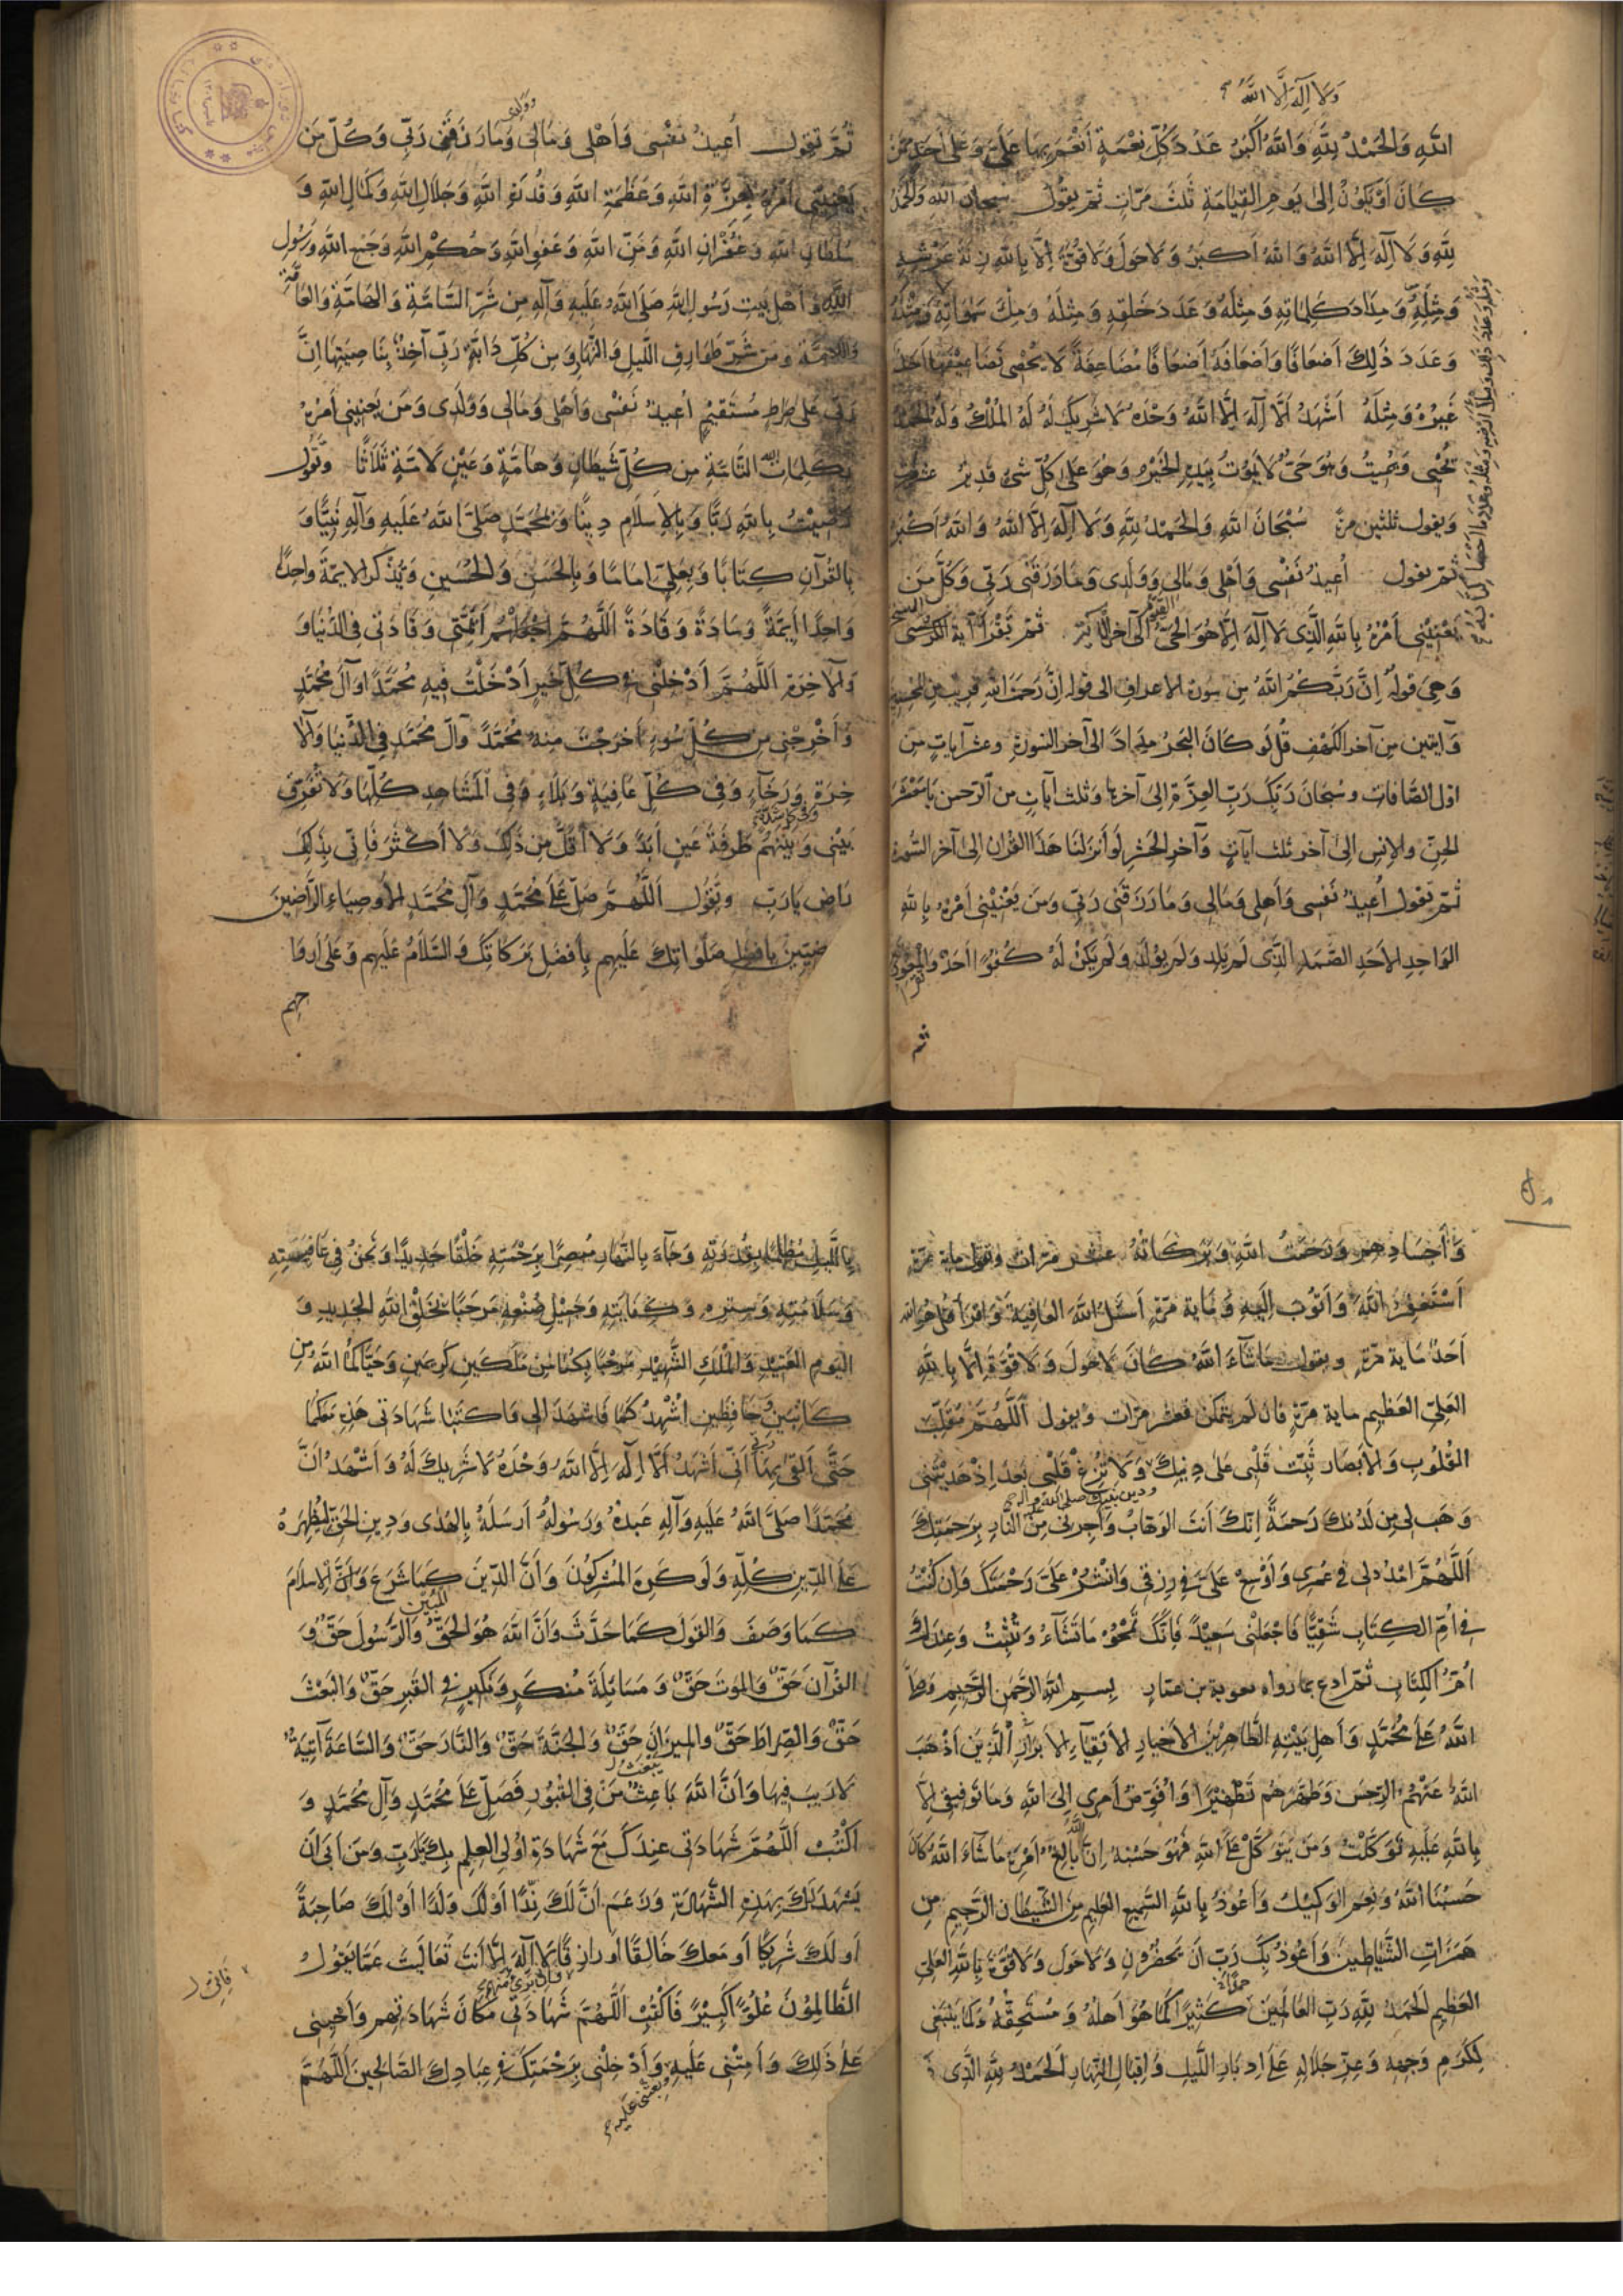 ولا اله الا الله
اللهِ وَالحَمْدُ لِلّهِ وَاللهُ أَكبَرُ عَدَدَ كُلِّ نِعْمَةٍ أَنْعَمَ بِهَا عَلَيَّ وَعَلى أَحَدٍ مِمَّنْ
كانَ أَوْ يَكُونُ إِلى يَومِ القِيامَةِ ثلثَ مَرّاتٍ ثم يقول سبحان اللهِ وَالحَمْدُ
لِلّهِ وَلَا اِلهَ اِلَّا اللهُ وَاللهُ أَكبَرُ وَلَا حَولَ وَلَا قُوَّةَ اِلَّا بِاللهِ زِنَةَ عَرْشِهِ
وَمِثْلَهُ وَمِدَادَ كَلِمَاتِهِ وَمِثْلَهُ وَعَدَدَ خَلقِهِ وَمِثلَهُ وَمِلءَ سَمٰوَاتِهِ وَمِثْلَهُ
وَعَدَدَ ذٰلِكَ أَضعَافًا وَأَضعَافَهُ أَضعَافًا مُضَاعَفَةً لَا يُحْصى تَضَاعِيفَهَا أَحَدٌ
غَيرُهُ وَمِثلَهُ أَشْهَدُ أَلَّا اِلهَ اِلَّا اللهُ وَحْدَهُ لَا شَرِيكَ لَهُ لَهُ المُلْكُ وَلَهُ الحَمْدُ
يُحْيِى وَيُمِيتُ وَهُوَ حَيٌّ لَا يَمُوتُ بِيَدِهِ الخَيْرُ وَهُوَ عَلى كُلِّ شَىْءٍ قَدِيرٌ عشر مرات
وَيقول ثلثين مرة سُبْحَانَ اللهِ وَالحَمْدُ لِلّهِ وَلَا اِلهَ اِلَّا اللهُ وَاللهُ أَكْبَرُ
ثم يقول أُعِيذُ نَفْسِى وَأَهْلِى وَمَالِى وَوَلَدِى وَمَا رَزَقَنِى رَبِّى وَكُلَّ مَن
يَعْنِيْنِى أَمْرُهُ بِاللهِ الَّذِى لَا اِلهَ اِلَّا هُوَ الحَىُّ القَيُّومُ الى آخر ثم تَقْرَأُ آية الكرسى
وَهِىَ قوله اِنَّ رَبَّكُمُ اللهُ مِن سورة الاعراف الى قوله اِنَّ رَحمَتَ اللهِ قريب من المحسنين
وَآيتين مِن آخر الكهف قُل لَو كَانَ البَحْرُ مِدَادًا الى آخر السورة وعشر آياتٍ مِن
اوّل الصّافات وسُبْحَانَ رَبِّكَ رَبِّ العِزَّةِ الى آخرها وَثلث آياتٍ من الرّحمن يَا مَعْشَرَ
الجِنِّ والاِنسِ اِلى آخر ثلث آياتٍ وَآخر الحشر لَو أَنزَلنَا هَذَا القُرآن الى آخر السّورة
ثُمّ يَقُول أُعِيذُ نَفسِى وَأَهلِى وَمَالِى وَمَا رَزَقَنِى رَبِّى وَمَن يَعْنِيْنِى أَمْرُهُ بِاللهِ
الوَاحِدِ الاَحَدِ الصَّمَدِ الَّذِى لَم يَلِد وَلَم يُولَد وَلَم يَكُنْ لَهُ كُفُوًا اَحَدٌ
وولدى
ثُمَّ تقول أُعِيذُ نَفْسِى وَأَهْلِى وَمَالِى وَمَا رَزَقَنِى رَبِّى وَكُلَّ مَن
يَعْنِيْنِى أَمْرُهُ بِعِزَّةِ اللهِ وَعَظَمَةِ اللهِ وَقُدْرَةِ اللهِ وَجَلَالِ اللهِ وَكَمَالِ اللهِ وَ
سُلطَانِ اللهِ وَغُفْرَانِ اللهِ وَمَنِّ اللهِ وَعَفوِ اللهِ وَحُكْمِ اللهِ وَجَمْعِ اللهِ وَرَسُولِ
اللهِ وَأَهْلِ بَيتِ رَسُولِ اللهِ صَلَّى اللهُ عَلَيهِ وَآلِهِ مِن شَرِّ السَّامَّةِ وَالهَامَّةِ وَالعَامَّةِ
وَاللَّامَّةِ وَمِن شَرِّ طَوَارِقِ اللَّيلِ وَالنَّهَارِ وَمِن كُلِّ دَابَّةٍ رَبِّى آخِذٌ بِنَاصِيَتِهَا اِنَّ
رَبِّى عَلى صِرَاطٍ مُستَقِيمٍ أعيذُ نَفْسِى وَأَهلِى وَمَالِى وَوَلَدِى وَمَن يَعْنِينِى أَمْرُهُ
بِكَلِمَاتِ اللهِ التَّامَّةِ مِن كُلِّ شَيطَانٍ وَهَامَّةٍ وَعَيْنٍ لَامَّةٍ ثَلَاثًا وَتَقُول
رَضِيْتُ بِاللهِ رَبًّا وَبِالاِسلَامِ دِينًا وَبِمُحَمَّدٍ صَلَّى اللهُ عَلَيهِ وَآلِهِ نَبِيًّا وَ
بِالقُرآنِ كِتَابًا وَبِعَلِىٍّ اِمَامًا وَبِالحَسَنِ وَالحُسَينِ وَيُذْكَر الايمّةَ واحِدًا
وَاحِدًا أَيِمَّةً وَسَادَةً وَقَادَةً اَللَّهُمَّ اجْعَلْهُم أَئِمَّتِى وَقَادَتِى فِى الدُّنْيَا وَ
وَالآخِرَةِ اَللَّهُمَّ أَدْخِلْنِى فِى كُلِّ خَيرٍ أَدْخَلْتَ فِيهِ مُحَمَّدًا وَآلَ مُحَمَّدٍ
وَأَخْرِجْنِى مِن كُلِّ سُوءٍ أَخرَجْتَ مِنهُ مُحَمَّدًا وَآلَ مُحَمَّدٍ فِى الدُّنيَا وَالآ
خِرَةِ وَرَخَآءٍ وَفِى كُلِّ عَافِيَةٍ وَبَلَآءٍ وَفِى المَشَاهِدِ كُلِّهَا وَلَا تُفَرِّق
وفى كل شدّة
بَيْنِى وَبَيْنَهُم طَرفَةَ عَينٍ أَبَدًا وَلَا أَقَلَّ مِن ذٰلِكَ وَلَا أَكْثَرَ فَاِنِّى بِذٰلِكَ
رَاضٍ يَا رَبِّ وتقُول اَللَّهُمَّ صَلِّ عَلى مُحَمَّدٍ وَآلِ مُحَمَّدٍ الأَوصِيَاءِ الرَّاضِينَ
بِأفضَلِ صَلَوَاتِكَ عَلَيهِم بِأَفضَلِ بَرَكَاتِكَ وَالسَّلَامُ عَلَيهِم وَعَلى أَروَا
حِهِم
وَأَجسَادِهِم وَرَحمَتُ اللهِ وَبَرَكَاتُهُ عشر مَرّات وتقول ماية مرّة
أَسْتَغفِرُ اللهَ وَأَتُوبُ اِلَيهِ وَماية مرّة أَسئَلُ اللهَ العَافِيَةَ وَاقرَأ قل هو الله
اَحَدٌ ماية مرّة ويقول مَا شَآءَ اللهُ كَانَ لَا حَولَ وَلَا قُوَّةَ اِلَّا بِاللهِ
العَلِىِّ العَظِيمِ ماية مرّةٍ فان لم يتمكن فعشر مرّات ويقول اَللَّهُمَّ مُقَلِّبَ
القُلُوبِ وَالأَبصَار ثَبِّت قَلبِى عَلى دِينِكَ وَلَا تُزِغ قَلْبِى بَعدَ اِذ هَدَيْتَنِى
ودين نبيك صلى الله عليه واله
وَهَب لِى مِن لَدُنكَ رَحمَةً اِنَّكَ أَنتَ الوَهَّابُ وَأَجِرنِى مِنَ النَّارِ بِرَحمَتِكَ
اَللَّهُمَّ امْدُد لِى فِى عُمرِى وَأَوْسِع عَلَىَّ فِى رِزقِى وَانْشُرْ عَلَىَّ رَحْمَتَكَ وَاِن كُنْتُ
فِى اُمِّ الكِتَابِ شَقِيًّا فَاجْعَلْنِى سَعِيدًا فَاِنَّكَ تَمْحُو مَا تَشَآءُ وَتُثْبِتُ وَعِندَكَ
اُمُّ الكِتَابِ ثمّ ادع بما رواه معوية بن عمّار بِسمِ اللهِ الرَّحمنِ الرَّحِيمِ وَصَلَّى
اللهُ عَلى مُحَمَّدٍ وَأَهلِ بَيْتِهِ الطَّاهِرِيْنَ الأَخيَارِ الأَتقِيَآءِ الأَبرَارِ الَّذِينَ أَذْهَبَ
اللهُ عَنْهُمُ الرِّجسَ وَطَهَّرَهُم تَطْهِيْرًا وَأُفَوِّضُ أَمرِى اِلَى اللهِ وَمَا تَوفِيقِى اِلَّا
بِاللهِ عَلَيهِ تَوَكَّلتُ وَمَن يَتَوَكَّل عَلَى اللهِ فَهُوَ حَسْبُهُ اِنَّ اللهَ بَالِغُ أَمرِهِ مَا شَاءَ اللهُ كَانَ
حَسْبُنَا اللهُ وَنِعمَ الوَكِيْلُ وَأَعُوذُ بِاللهِ السَّمِيعِ العَلِيمِ مِنَ الشَّيطَانِ الرَّجِيمِ مِن
هَمَزَاتِ الشَّيَاطِينِ وَأَعُوذُ بِكَ رَبِّ أَن يَحضُرُونِ وَلَا حَولَ وَلَا قُوَّةَ بِاللهِ العَلِىِّ
حمدًا
العَظِيمِ الحَمدُ لِلّهِ رَبِّ العَالَمِينَ كَثِيرًا كَمَا هُوَ أَهلُهُ وَمُسْتَحِقُّهُ وَكَمَا يَنْبَغِى
لِكَرَمِ وَجهِهِ وَعِزِّ جَلَالِهِ عَلى اِدبَارِ اللَّيلِ وَاِقبَالِ النَّهَارِ الحَمدُ لِلّهِ الَّذِى
بِاللَّيلِ مُظلِمًا بِقُدرَتِهِ وَجَآءَ بِالنَّهَارِ مُبصِرًا بِرَحْمَتِهِ خَلْقًا جَدِيدًا وَنَحنُ فِى عَافِيَتِهِ
وَسَلَامَتِهِ وَسِترِهِ وَكِفَايَتِهِ وَجَمِيْلِ صُنْعِهِ مَرحَبًا بِخَلْقِ اللهِ الجَدِيدِ وَ
اليَومِ العَتِيدِ وَالمَلَكِ الشَّهِيْدِ مَرحَبًا بِكُمَا مِن مَلَكَينِ كَرِيمَينِ وَحَيَّاكُمَا اللهُ مِن
كَاتِبَينِ حَافِظَينِ اُشْهِدُكُمَا فَاشهَدَا لِى وَاكتُبَا شَهَادَتِى هَذِهِ مَعَكُمَا
حَتَّى أَلقى بِهَا رَبِّى أَنِّى أَشهَدُ أَلَّا اِلهَ اِلَّا اللهُ وَحْدَهُ لَا شَرِيكَ لَهُ وَأَشْهَدُ أَنَّ
مُحَمَّدًا صَلَّى اللهُ عَلَيهِ وَآلِهِ عَبدُهُ وَرَسُولُهُ اَرسَلَهُ بِالهُدٰى وَدِينِ الحَقِّ لِيُظهِرَهُ
عَلَى الدِّينِ كُلِّهِ وَلَو كَرِهَ المُشرِكُونَ وَأَنَّ الدِّينَ كَمَا شَرَعَ وَأَنَّ الاِسلَامَ
المُبِينُ
كَمَا وَصَفَ وَالقَولَ كَمَا حَدَّثَ وَأَنَّ اللهَ هُوَ الحَقُّ وَالرَّسُولَ حَقٌّ وَ
القُرآنَ حَقٌّ وَالمَوتَ حَقٌّ وَمَسَائَلَةَ مُنكَرٍ وَنَكِيرٍ فِى القَبرِ حَقٌّ وَالبَعْثَ
حَقٌّ وَالصِّرَاطَ حَقٌّ وَالمِيزَانَ حَقٌّ وَالجَنَّةَ حَقٌّ وَالنَّارَ حَقٌّ وَالسَّاعَةَ آتِيَةٌ
يَبْعَثُ
لَا رَيبَ فِيهَا وَأَنَّ اللهَ بَاعِثُ مَنْ فِى القُبُورِ فَصَلِّ عَلى مُحَمَّدٍ وَآلِ مُحَمَّدٍ وَ
اَكتُبْ اَللَّهُمَّ شَهَادَتِى عِندَكَ مَعَ شَهَادَةِ اُولِى العِلمِ بِكَ يَا رَبِّ وَمَن أَبى أَن
يَشهَدَ لَكَ بِهَذِهِ الشَّهَادَةِ وَزَعَمَ أَنَّ لَكَ نِدًّا أَو لَكَ وَلَدًا أَوْ لَكَ صَاحِبَةً
أَو لَكَ شَرِيكًا أَو مَعَكَ خَالِقًا أَو رَازِقًا لَا اِلهَ اِلَّا أَنتَ تَعَالَيتَ عَمَّا يَقُولُ
فانى
فانا برئ منهم
الظَّالِمُونَ عُلُوًّا كَبِيرًا فَاكتُبْ اَللَّهُمَّ شَهَادَتِى مَكَانَ شَهَادَتِهِم وَأَحيِنِى
عَلى ذٰلِكَ وَأَمِتْنِى عَلَيهِ وَأَدْخِلْنِى بِرَحْمَتِكَ فِى عِبَادِكَ الصَّالِحِينَ اَللَّهُمَّ
وابعثنى عليه